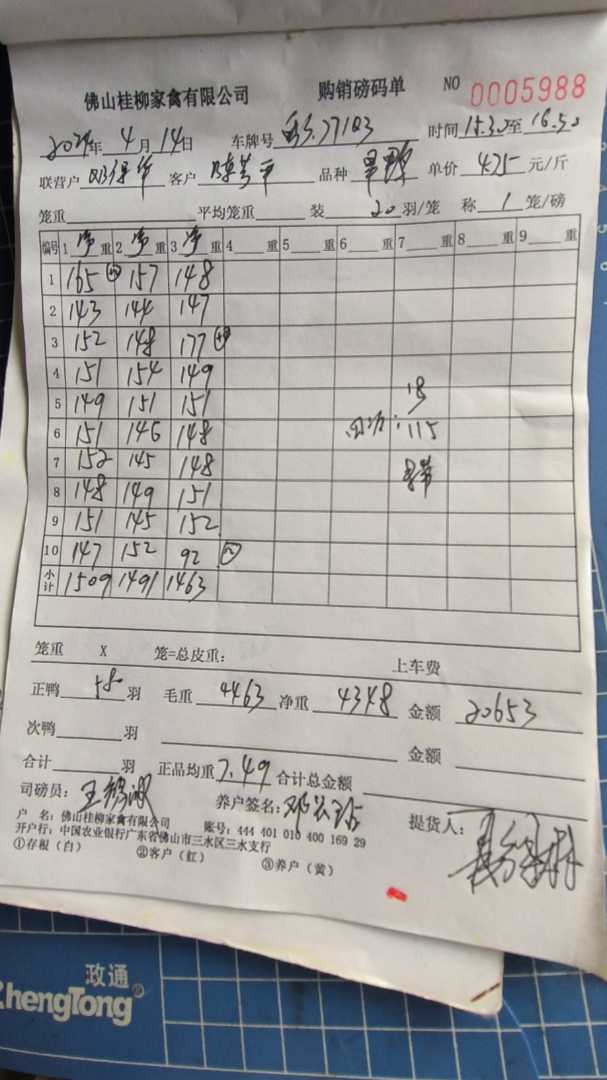 佛山桂柳家禽有限公司 购销磅码单 NO 0005988
年 4月14日 车牌号 77103 时间 15.30至16.50
联营户 客户 品种 单价 4.75 元/斤
笼重 平均笼重 装 20 羽/笼 称 1 笼/磅
编号 1 净 重 2 净 重 3 净 重 4 重 5 重 6 重 7 重 8 重 9 重
1 165 157 148
2 143 144 147
3 152 148 177
4 151 154 149
5 149 151 151 18
6 151 146 148 115
7 152 145 148
8 148 149 151
9 151 145 152
10 147 152 92
小计 1509 1491 1463
笼重 X 笼=总皮重: 上车费
正鸭 580 羽 毛重 4463 净重 4348 金额 20653
次鸭 羽 金额
合计 羽 正品均重 7.49 合计总金额
司磅员: 王 养户签名: 邓 提货人:
户 名: 佛山桂柳家禽有限公司 账号: 444 401 010 400 169 29
开户行: 中国农业银行广东省佛山市三水区三水支行
①存根(白) ②客户(红) ③养户(黄)
政通
ZhengTong®